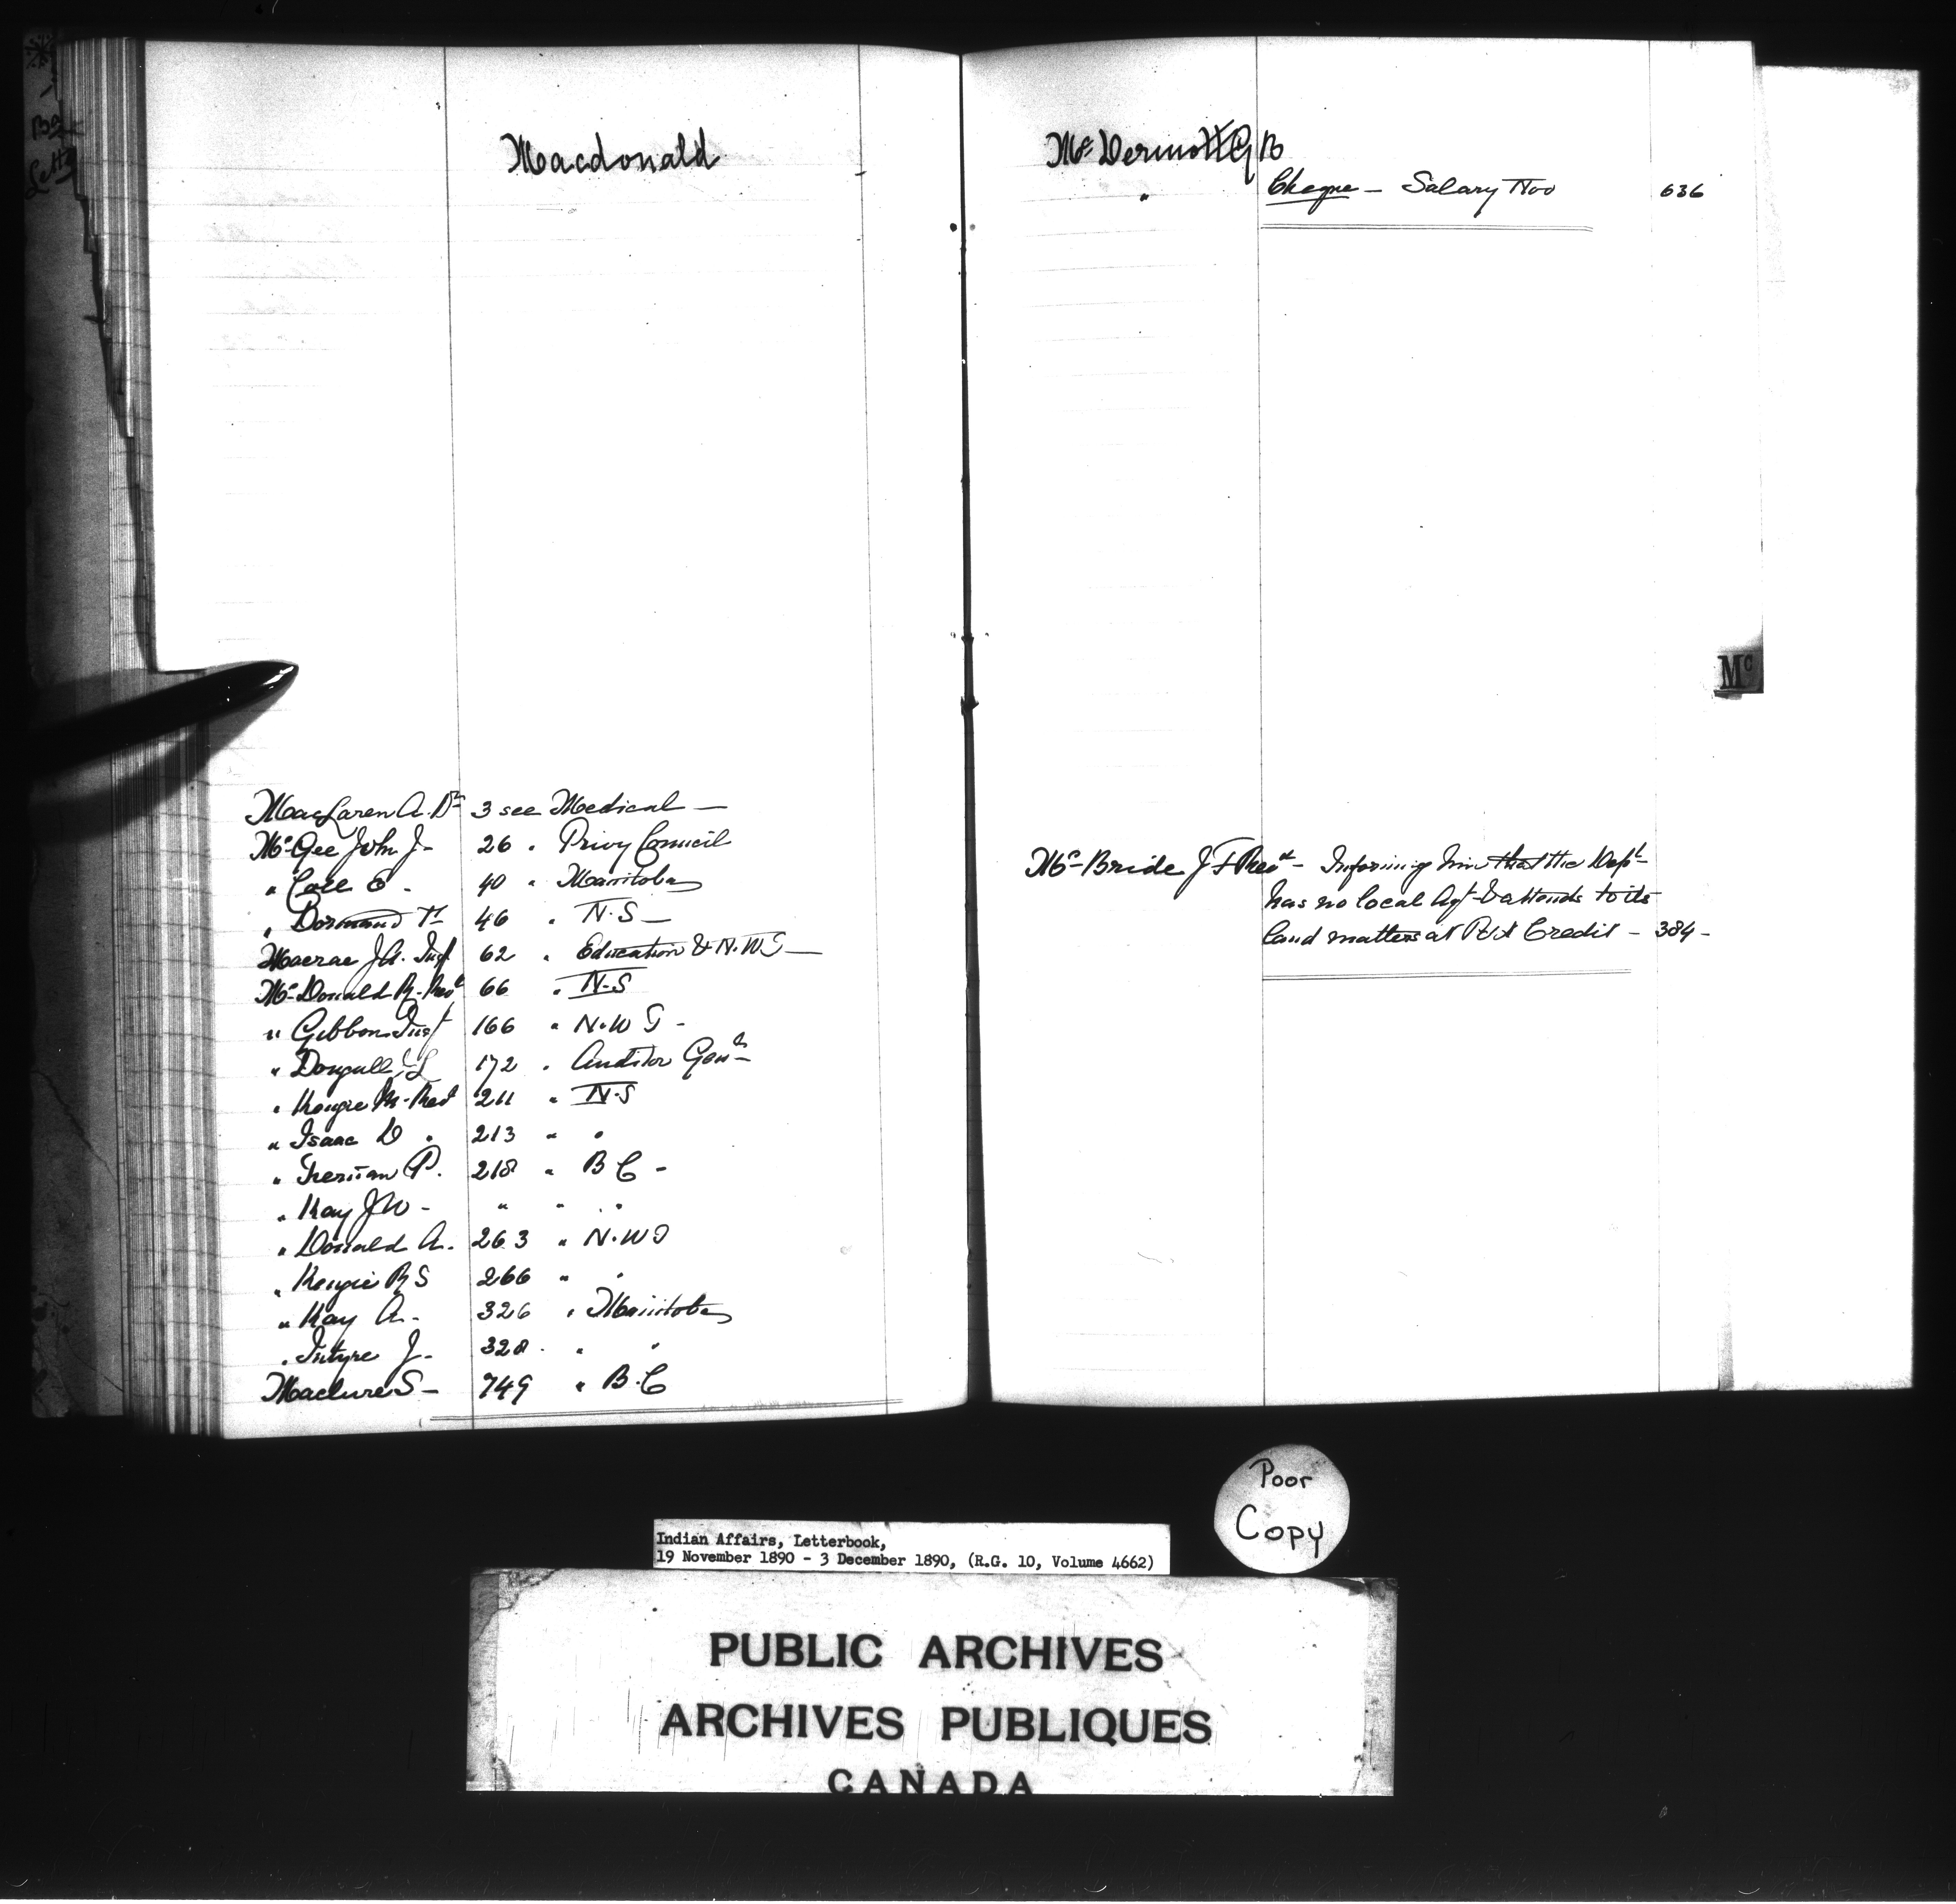 Macdonald
MacLaren A. Dr 3 see Medical —
Mc Gee John J - 26 " Privy Council
" Coll E - 40 " Manitoba
" Dormand T 46 " N.S —
Macrae J.A. Insp 62 " Education & N.W.T —
Mc Donald R. Revd 66 " N.S
" Gibbon Insp 166 " N.W T -
" Dougall J L 172 " Auditor Genl
" Kenzie M. Revd 211 " N.S
" Isaac D " 213 " "
" Tiernan P. 218 " B C -
" Kay J W - " " "
" Donald A. 263 " N.W T
" Kenzie R S 266 " "
" Kay A. - 326 " Manitoba
" Intyre J. - 328 - " "
Maclure S - 749 " B.C
Mc Dermott G B
" Cheque — Salary Nov 636
Mc Bride J F Revd - Informing him that the Dept
has no local Agt & attends to its
land matters at Port Credit - 384 -
Mc
Poor
Copy
Indian Affairs, Letterbook,
19 November 1890 - 3 December 1890, (R.G. 10, Volume 4662)
PUBLIC ARCHIVES
ARCHIVES PUBLIQUES
CANADA